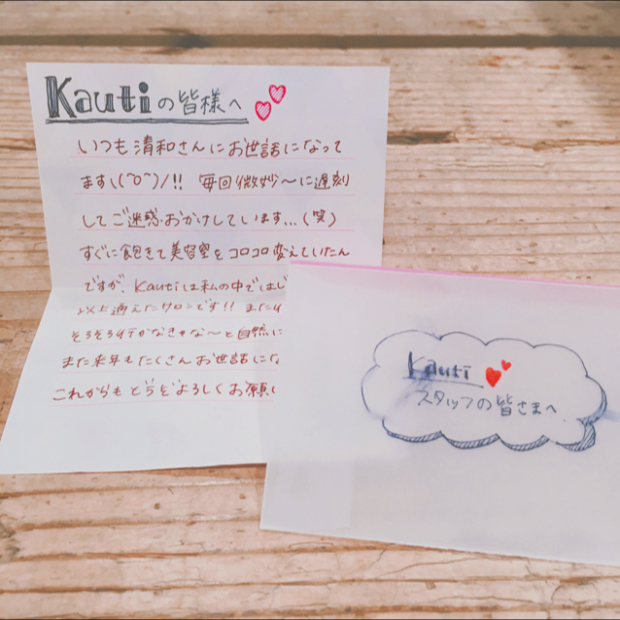 Kautiの皆様へ
いつも清和さんにお世話になって
ます\(^O^)/!! 毎回微妙〜に遅刻
してご迷惑おかけしています...(笑)
すぐに飽きて美容室をコロコロ変えていたん
ですが、Kautiは私の中ではじ
以上通えたサロンです!! また
そろそろ行かなきゃな〜と自然に
また来年もたくさんお世話にな
これからもどうぞよろしくお願い
Kauti
スタッフの皆さまへ